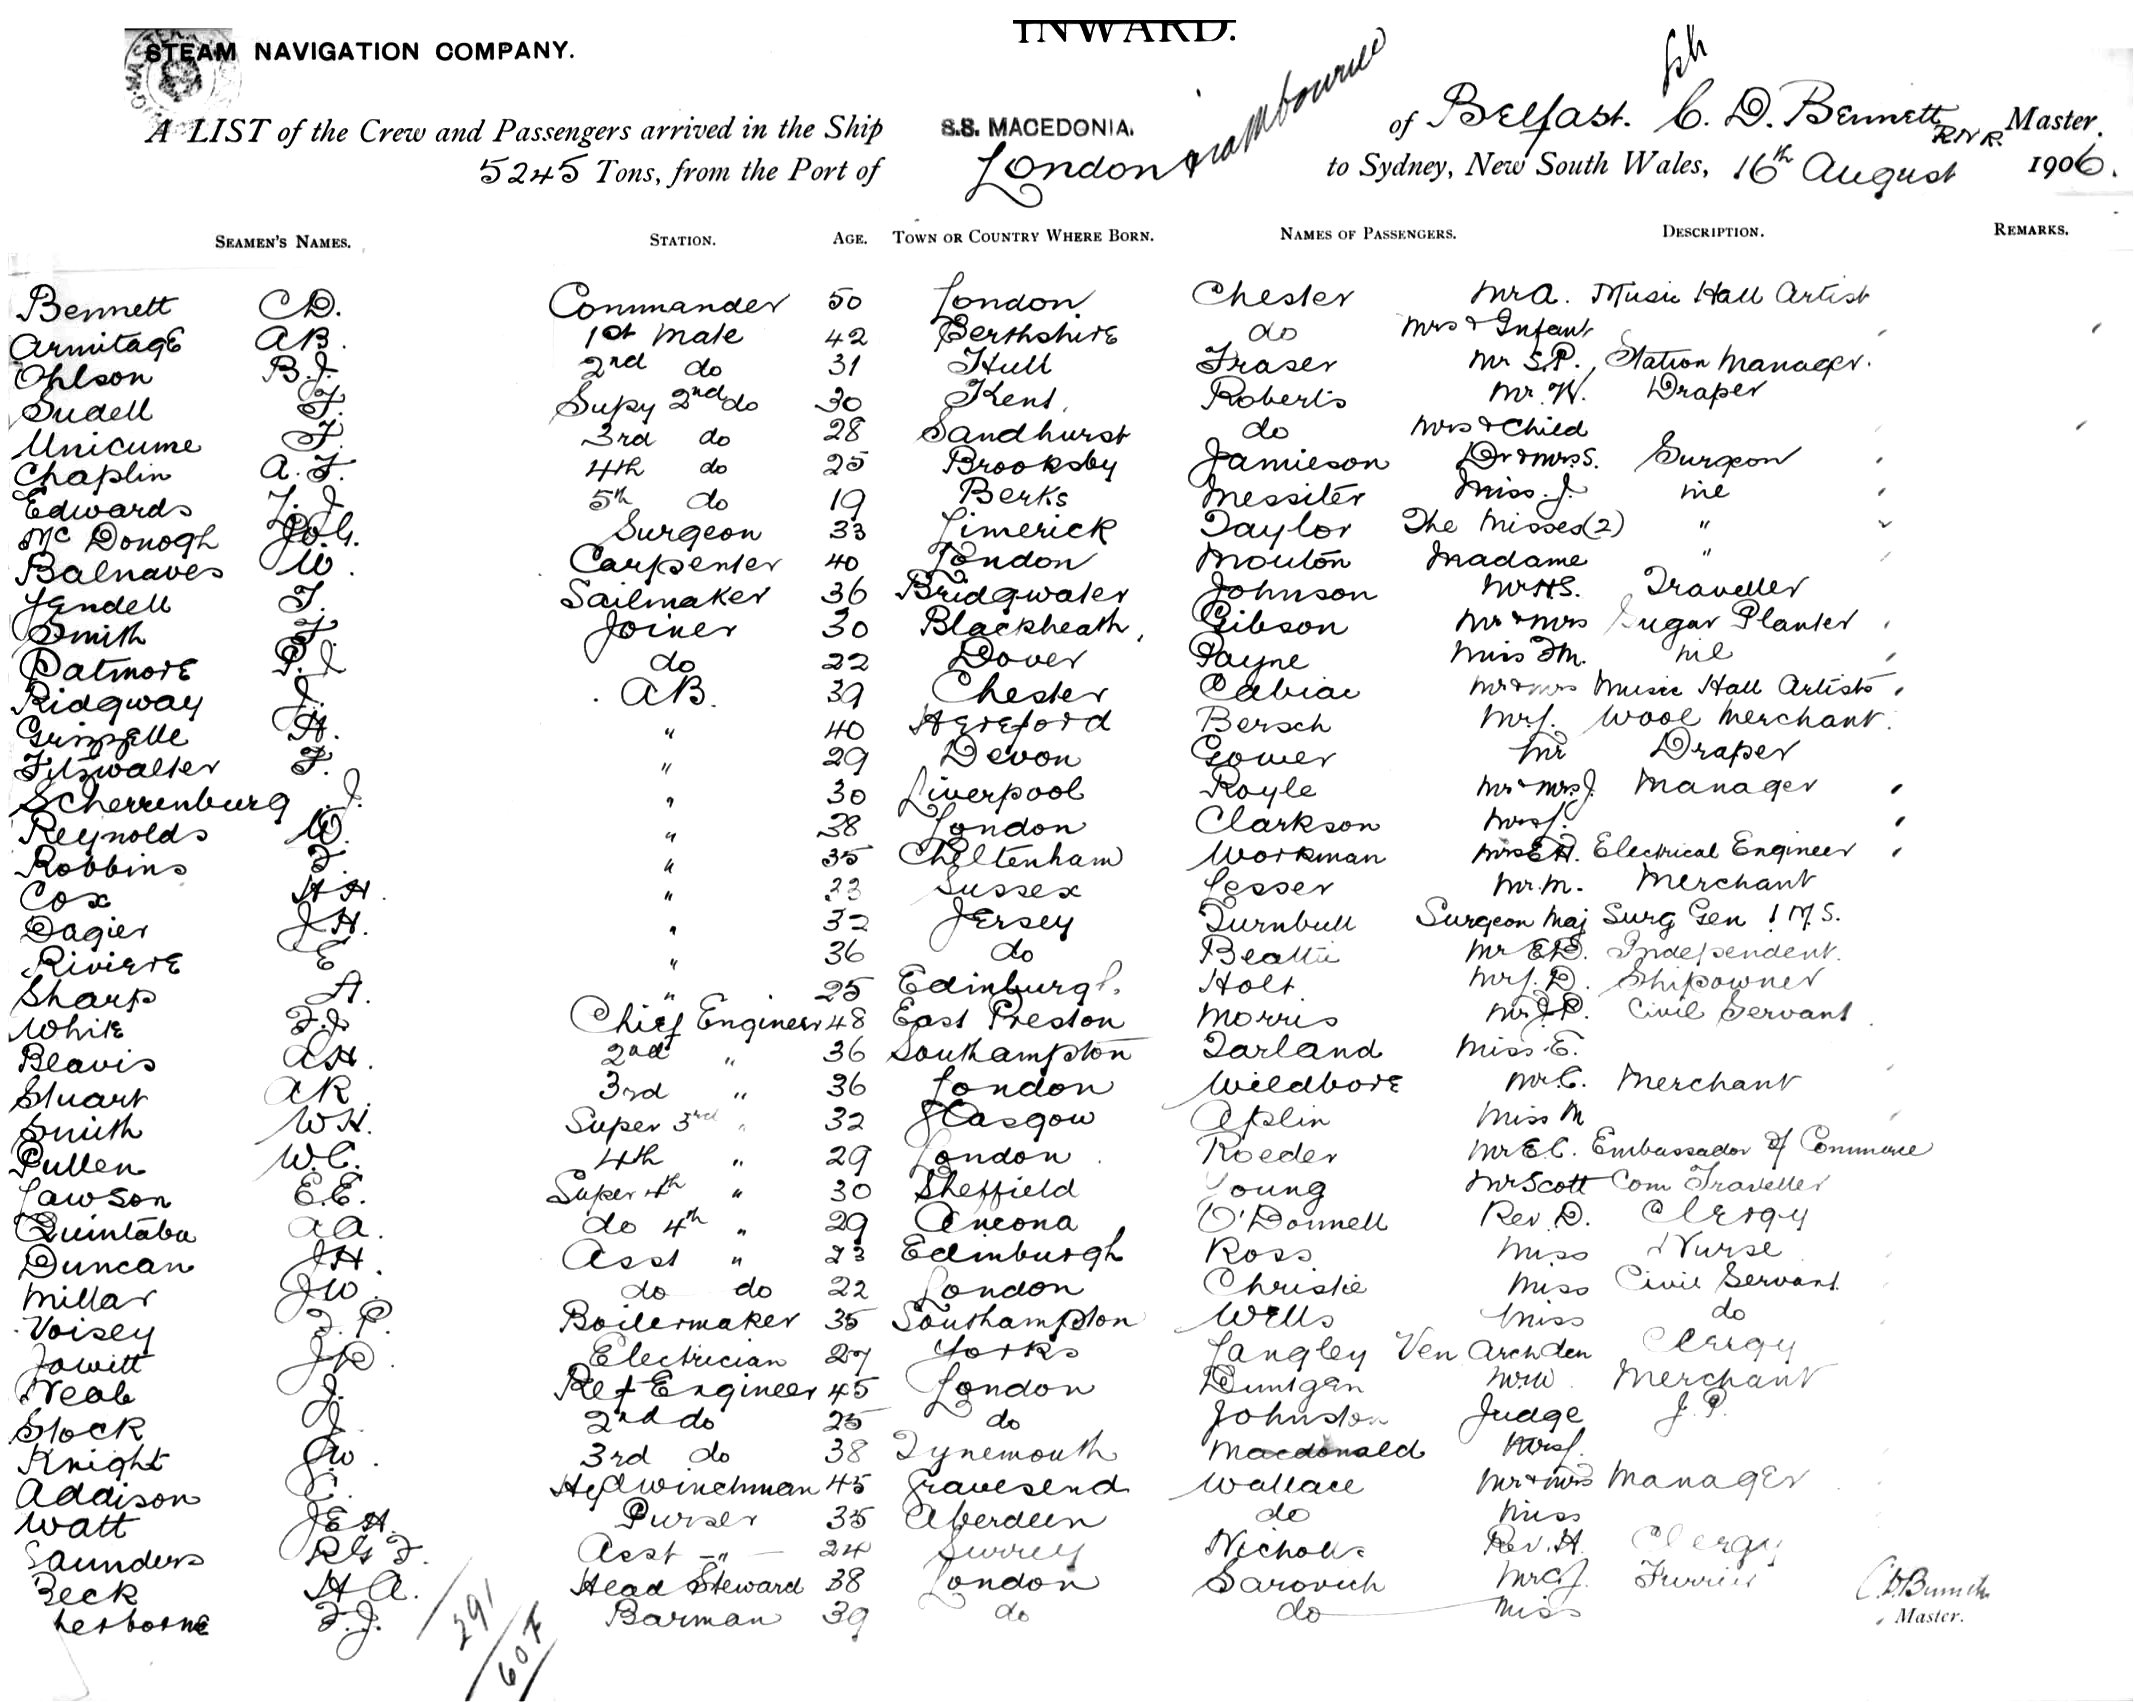 INWARD.
STEAM NAVIGATION COMPANY.
A LIST of the Crew and Passengers arrived in the Ship S.S. MACEDONIA. of Belfast. C. D. Bennett RNR. Master.
5245 Tons, from the Port of London to Sydney, New South Wales, 16th August 1906.
SEAMEN'S NAMES. STATION. AGE. TOWN OR COUNTRY WHERE BORN. NAMES OF PASSENGERS. DESCRIPTION. REMARKS.
Bennett C.D. Commander 50 London Chester Mr A. Music Hall Artist
Armitage A B. 1st Mate 42 Berthshire do Mrs & Infant
Ohlson B.J. 2nd do 31 Hull Fraser Mr S.P., Station Manager.
Sudell F. Supy 2nd do 30 Kent. Roberts Mr. W. Draper
Unicume F. 3rd do 28 Sandhurst do Mrs & Child
Chaplin A. F. 4th do 25 Brooksby Jamieson Dr & Mrs S. Surgeon
Edwards 5th do 19 Berks Messiter Miss. J. nil
McDonogh Surgeon 33 Limerick Taylor The Misses (2) "
Balnaves W. Carpenter 40 London Mouton Madame "
Yendell F. Sailmaker 36 Bridgwater Johnson Mr HS. Traveller
Smith F. Joiner 30 Blackheath, Gibson Mr & Mrs Sugar Planter
Patmore P.J. do 22 Dover Payne Miss F M. nil
Ridgway J. AB. 39 Chester Cabiac Mr & Mrs Music Hall Artists
H. " 40 Hereford Bersch Mr J. Wool Merchant.
Fitzwalter F. " 29 Devon Gower Mr Draper
Scherrenburg J. " 30 Liverpool Royle Mr & Mrs J. Manager
Reynolds W. " 38 London Clarkson Mrs J.
Robbins F. " 35 Cheltenham Workman Electrical Engineer
Cox H H. " 23 Sussex Lesser Mr. M. Merchant
Dagier J H. " 32 Jersey Turnbull Surgeon Maj Surg Gen I.M.S.
Riviere E " 36 do Beattie Mr E.D. Independent.
Sharp A. " 25 Edinburgh. Holt Mr J. D. Shipowner
White F.J. Chief Engineer 48 East Preston Morris Mr J.P. Civil Servant
Beavis A H. 2nd " 36 Southampton Tarland Miss. E.
Stuart A R 3rd " 36 London Wildbore Mr C. Merchant
Smith W H. Super 3rd " 32 Glasgow Aplin Miss M
Pullen W.C. 4th " 29 London Roeder Mr E C. Embassador of Commerce
Lawson E.E. Super 4th " 30 Sheffield Young Mr Scott Com Traveller
Quintaba A A. do 4th " 29 Ancona O'Donnell Rev. D. Clergy
Duncan J H. Asst " 23 Edinburgh Ross Miss Nurse
Millar J W. do do 22 London Christie Miss Civil Servant
Voisey F. P. Boilermaker 35 Southampton Wells Miss do
Jowitt Electrician 27 Yorks Langley Ven Archden Clergy
Neale J. Ref Engineer 45 London Mr W. Merchant
Stock J. 2nd do 25 do Johnston Judge J. P.
Knight J W. 3rd do 38 Tynemouth Macdonald Mrs J.
Addison C. Hyd Winchman 45 Gravesend Wallace Mr & Mrs Manager
Watt J E H. Purser 35 Aberdeen do Miss
Saunders R G F. Asst - " - 24 Surrey Nicholls Rev. H. Clergy
Beck H A. Head Steward 38 London Sarovich Mr C J. Furrier
F.J. Barman 39 do do Miss
Master.
291
60 F